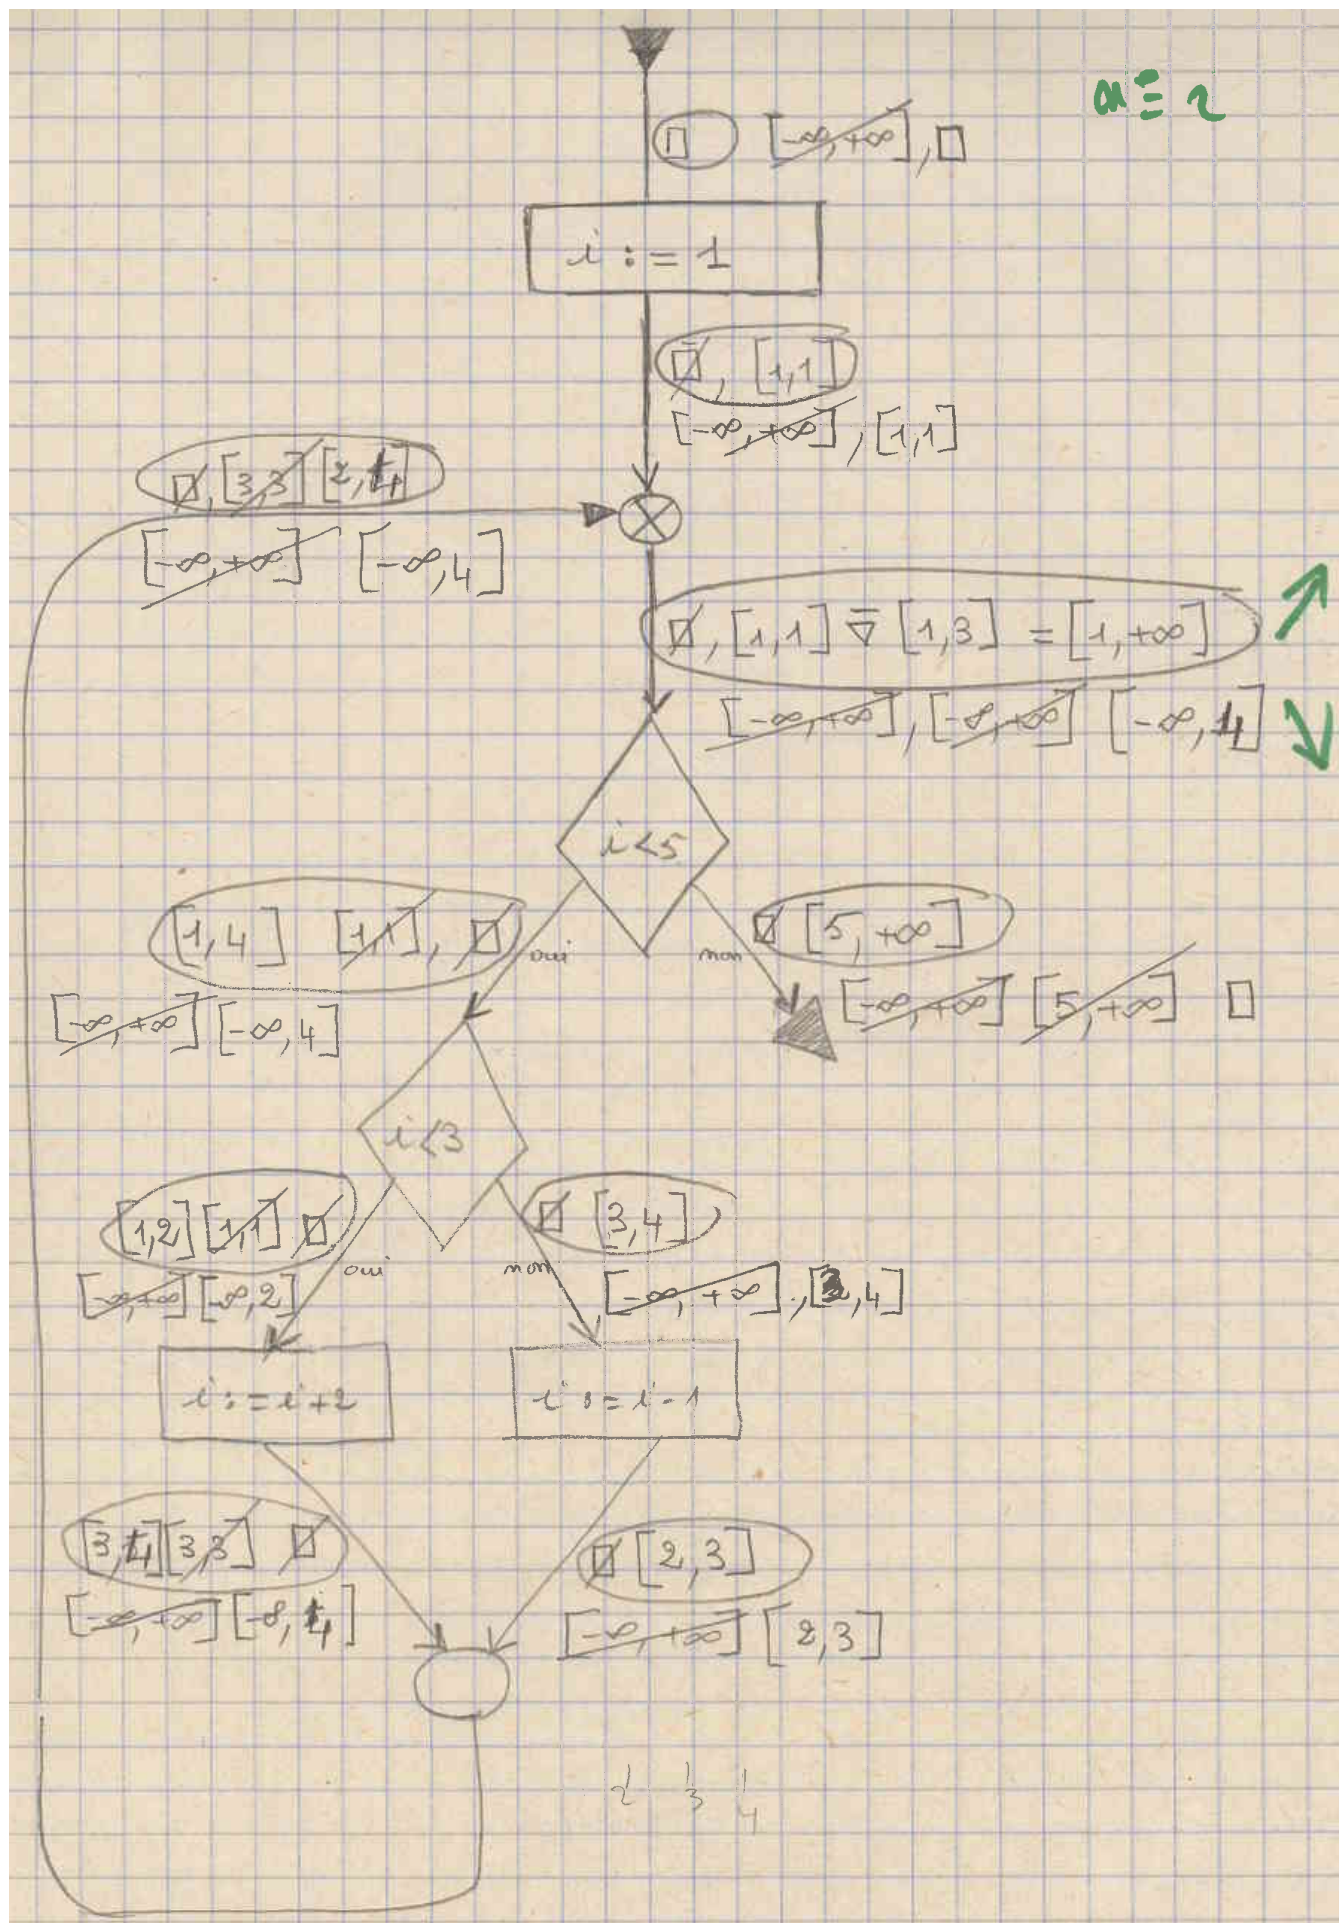 □ [-∞,+∞], □
i := 1
□, [1,1]
[-∞,+∞], [1,1]
□, [3,3] [2,4]
[-∞,+∞] [-∞,4]
□, [1,1] ∇̄ [1,3] = [1,+∞]
[-∞,+∞], [-∞,+∞] [-∞,4]
i<5
[1,4] [1,1], □ oui
non □ [5,+∞]
[-∞,+∞] [-∞,4]
[-∞,+∞] [5,+∞] □
i<3
[1,2] [1,1] □ oui
non □ [3,4]
[-∞,+∞] [-∞,2]
[-∞,+∞], [3,4]
i:=i+2
i:=i-1
[3,4] [3,3] □
□ [2,3]
[-∞,+∞] [-∞,4]
[-∞,+∞] [2,3]
2 3 4